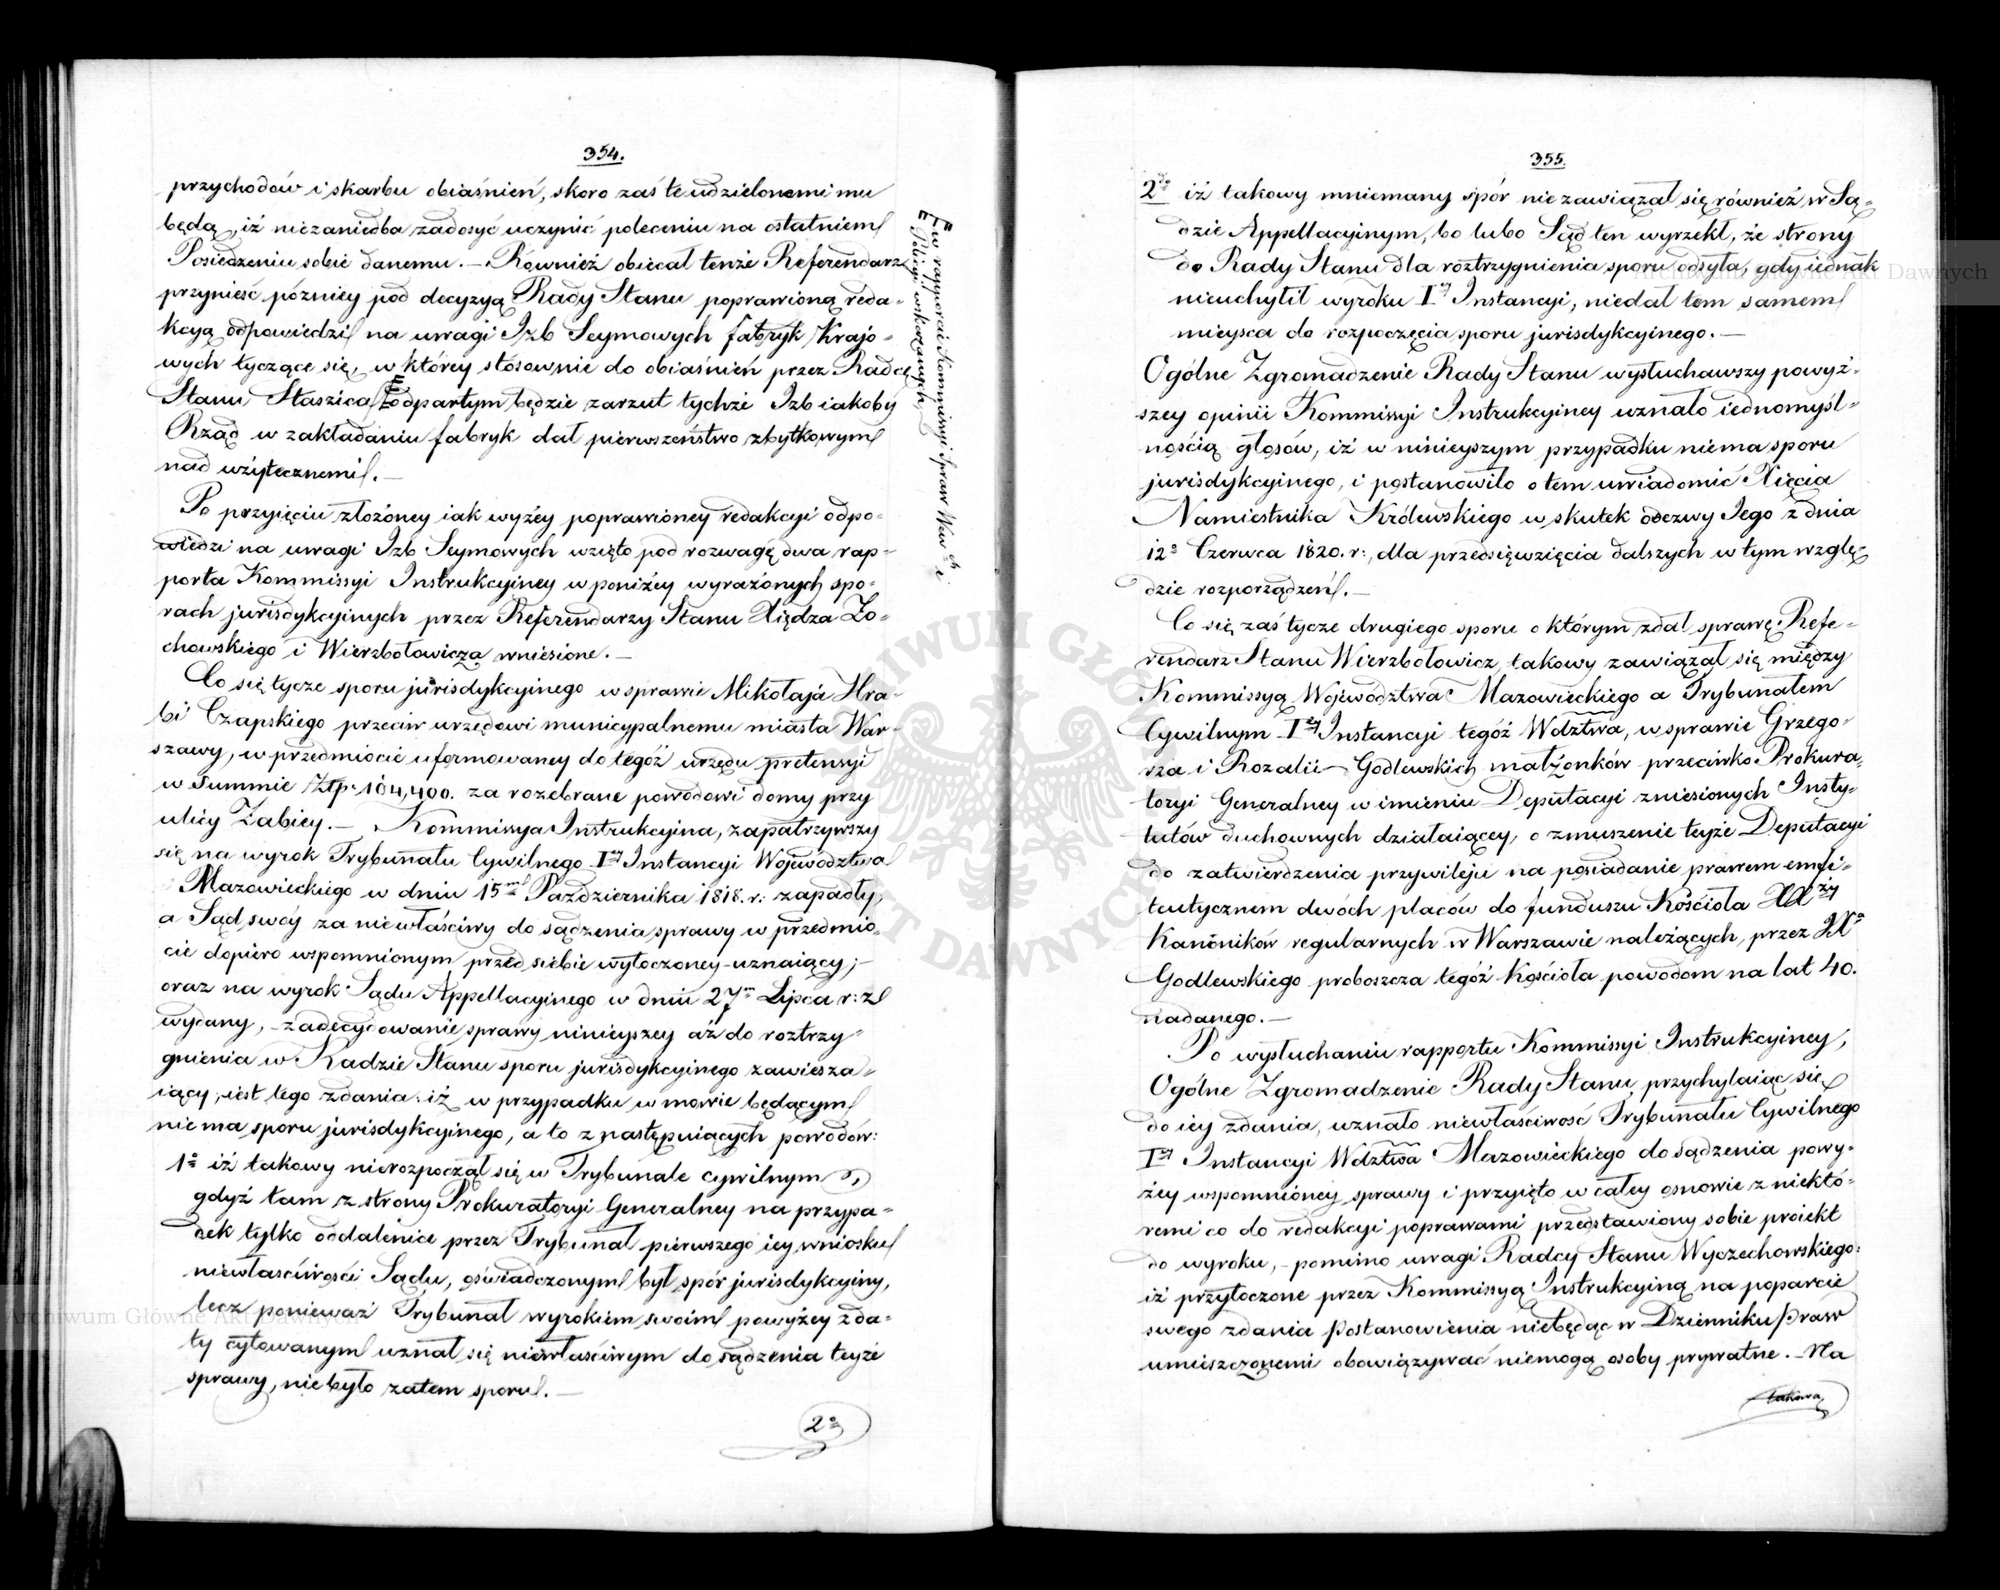 354.
przychodów i skarbu obiaśnień, skoro zaś te udzielonemi mu
będą, iż niezaniedba zadosyć uczynić poleceniu na ostatniem
Posiedzeniu sobie danemu. — Również obiecał tenże Referendarz
przynieść późniey pod decyzyą Rady Stanu poprawioną reda-
kcyą odpowiedzi na uwagi Izb Seymowych fabryk Krajo-
wych tyczące się, w którey stósownie do obiaśnień przez Radcę
Stanu Staszica odpartym będzie zarzut tychże Izb iakoby
Rząd w zakładaniu fabryk dał pierwszeństwo zbytkowym
nad użytecznemi. —
w rapporcie Kommissyi Spraw Wew. i
Policyi wskazanych,
Po przyięciu złożóney iak wyżéy poprawióney redakcyi odpo-
wiedzi na uwagi Izb Seymowych wzięto pod rozwagę dwa rap-
porta Kommissyi Instrukcyiney w poniżéy wyrażónych spo-
rach jurisdykcyinych przez Referendarzy Stanu Xiędza Żo-
chowskiego i Wierzbołowicza wniesione. —
Co się tycze sporu jurisdykcyinego w sprawie Mikołaja Hra-
bi Czapskiego przeciw urzędowi municypalnemu miasta War-
szawy, w przedmiocie uformowaney do tegóż urzędu pretensyi
w Summie Ztp. 104,400. za rozebrane powodowi domy przy
ulicy Żabiey. — Kommissya Instrukcyina, zapatrzywszy
się na wyrok Trybunału Cywilnego Iey Instancyi Województwa
Mazowieckiego w dniu 15m Października 1818. r. zapadły,
a Sąd swóy za niewłaściwy do sądzenia sprawy w przedmio-
cie dopiero wspomnionym przed siebie wytoczoney uznaiący; —
oraz na wyrok Sądu Appellacyinego w dniu 27m Lipca r: z.
wydany, zadecydowanie sprawy ninieyszey aż do roztrzy-
gnienia w Radzie Stanu sporu jurisdykcyinego zawiesza-
iący, iest tego zdania: iż w przypadku w mowie będącym
niema sporu jurisdykcyinego, a to z następuiących powodów:
1o iż takowy nierozpoczął się w Trybunale cywilnym,
gdyż tam z strony Prokuratoryi Generalney na przypa-
dek tylko oddalenia przez Trybunał pierwszego iey wniosku
niewłaściwości Sądu, oświadczonym był spór jurisdykcyiny,
lecz ponieważ Trybunał wyrokiem swoim powyżey z da-
ty cytowanym uznał się niewłaściwym do sądzenia teyże
sprawy, nie było zatem sporu. —
2o
355.
2do iż takowy mniemany spór niezawiązał się również w Są-
dzie Appellacyinym, bo lubo Sąd ten wyrzekł, że strony
do Rady Stanu dla roztrzygnienia sporu odsyła, gdy iednak
nieuchylił wyroku Iey Instancyi, niedał tem samem
mieysca do rozpoczęcia sporu jurisdykcyinego. —
Ogólne Zgromadzenie Rady Stanu wysłuchawszy powyż-
szey opinii Kommissyi Instrukcyiney uznało iednomyśl-
nością głosów, iż w ninieyszym przypadku niema sporu
jurisdykcyinego, i postanowiło o tem uwiadomić Xięcia
Namiestnika Królewskiego w skutek odezwy Jego z dnia
12o Czerwca 1820. r:, dla przedsięwzięcia dalszych w tym wzglę-
dzie rozporządzeń. —
Co się zaś tycze drugiego sporu o którym zdał sprawę Refe-
rendarz Stanu Wierzbołowicz, takowy zawiązał się między
Kommissyą Województwa Mazowieckiego a Trybunałem
Cywilnym Iey Instancyi tegóż Wdztwa, w sprawie Grzego-
rza i Rozalii Godlewskich małżonków przeciwko Prokura-
toryi Generalney w imieniu Deputacyi zniesionych Insty-
tutów duchownych działaiącey, o zmuszenie teyże Deputacyi
do zatwierdzenia przywileju na posiadanie prawem emfi-
teutycznem dwóch placów do funduszu Kościoła XXży
Kanoników regularnych w Warszawie należących, przez Xa
Godlewskiego proboszcza tegóż Kościoła powodom na lat 40.
nadanego. —
Po wysłuchaniu rapportu Kommissyi Instrukcyiney,
Ogólne Zgromadzenie Rady Stanu, przychylaiąc się
do iey zdania, uznało niewłaściwość Trybunału Cywilnego
Iey Instancyi Wdztwa Mazowieckiego do sądzenia powy-
żey wspomnióney sprawy i przyięło w całey osnowie z niektó-
remi co do redakcyi poprawami przedstawiony sobie proiekt
do wyroku, — pomimo uwagi Radcy Stanu Wyczechowskiego:
iż przytoczone przez Kommissyą Instrukcyiną na poparcie
swego zdania Postanowienia niebędąc w Dzienniku Praw
umieszczonemi obowiązywać niemogą osoby prywatne. — Na
takową
Archiwum Główne Akt Dawnych
Archiwum Główne Akt Dawnych
ARCHIWUM GŁÓWNE AKT DAWNYCH